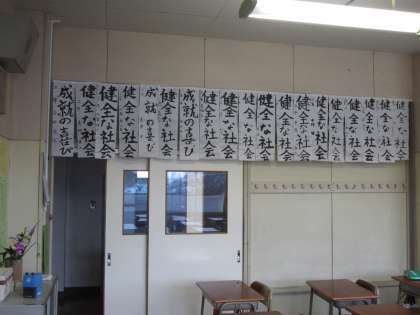 成就の喜び
健全な社会
健全な社会
成就の喜び
健全な社会
成就の喜び
健全な社会
健全な社会
健全な社会
健全な社会
健全な社会
健全な社会
健全な社会
健全な社会
健全な社会
健全な社会
健全な社会